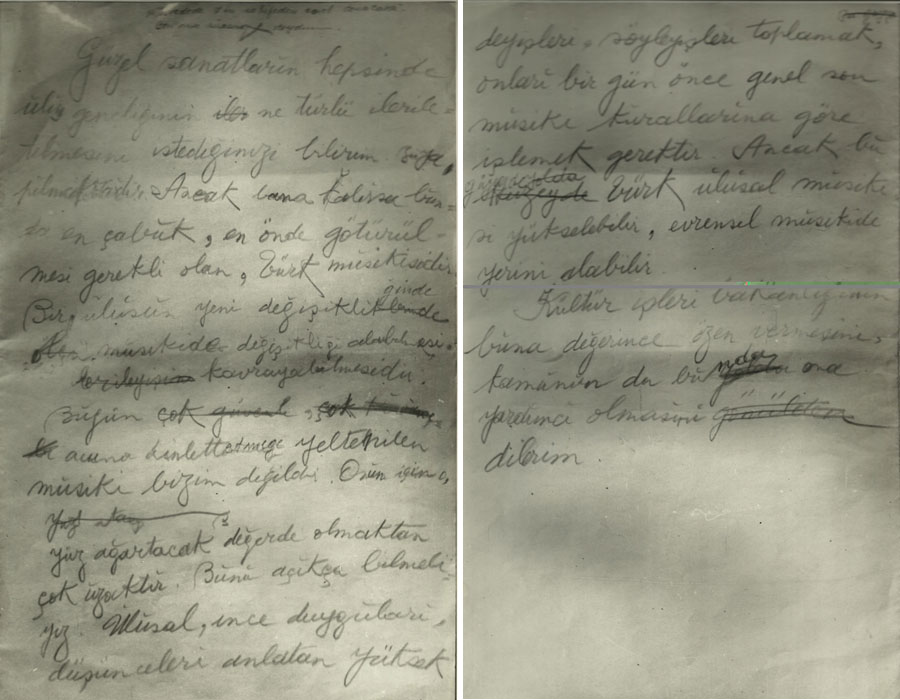 Güzel sanatların hepsinde
ulus gençliğinin ne türlü ilerle-
tilmesini istediğinizi bilirim.
Ancak bana kalırsa bun-
da en çabuk, en önde götürül-
mesi gerekli olan, Türk musikisidir.
Bir ulusun yeni değişikliğinde
musikide değişikliği alabilmesi,
kavrayabilmesidir.
Bugün
acuna dinletmeğe yeltenilen
musiki bizim değildir. Onun için o,
yüz ağartacak değerde olmaktan
çok uzaktır. Bunu açıkça bilmeli-
yiz. Ulusal, ince duyguları,
düşünceleri anlatan yüksek
deyişleri, söyleyişleri toplamak,
onları bir gün önce genel son
musiki kurallarına göre
işlemek gerektir. Ancak bu
Türk ulusal musiki
si yükselebilir, evrensel musikide
yerini alabilir.
Kültür işleri bakanlığının
buna değerince özen vermesini,
kamunun da bunda ona
yardımcı olmasını
dilerim